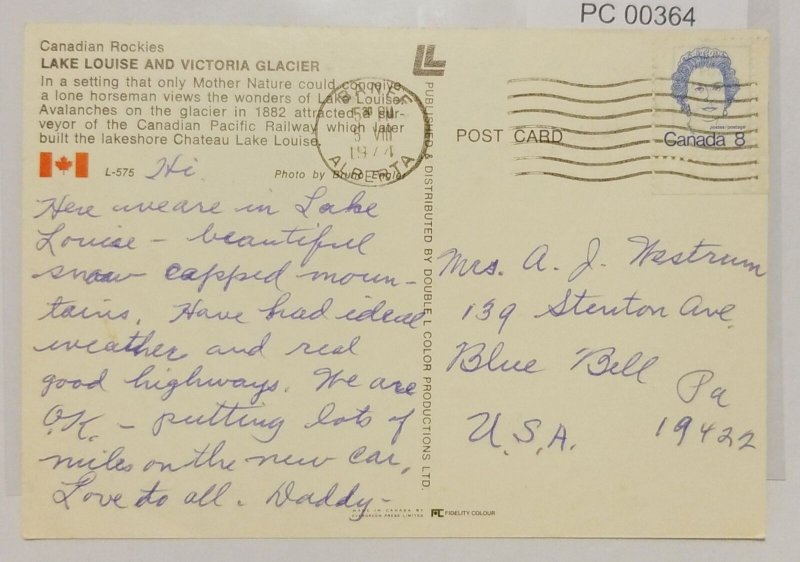 PC 00364
Canadian Rockies
LAKE LOUISE AND VICTORIA GLACIER
In a setting that only Mother Nature could contrive
a lone horseman views the wonders of Lake Louise.
Avalanches on the glacier in 1882 attracted a sur-
veyor of the Canadian Pacific Railway which later
built the lakeshore Chateau Lake Louise.
L-575
Photo by Bruno Engler
BANFF
PM
VIII
1974
ALBERTA
Hi
Here we are in Lake
Louise - beautiful
snow capped moun-
tains. Have had ideal
weather and real
good highways. We are
O.K. - putting lots of
miles on the new car.
Love to all. Daddy -
PUBLISHED & DISTRIBUTED BY DOUBLE L COLOR PRODUCTIONS LTD.
POST CARD
postes-postage
Canada 8
Mrs. A. J. Westrum
139 Stenton Ave.
Blue Bell
Pa
U.S.A. 19422
MADE IN CANADA BY
EVERGREEN PRESS LIMITED
FIDELITY COLOUR